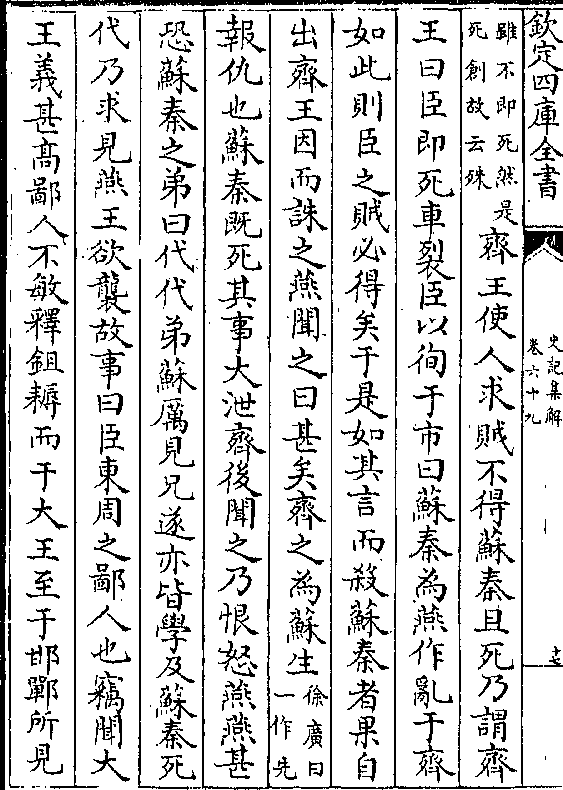 欽定四庫全書
史記集解
卷六十九
十七
雖不即死然是
死創故云殊
齊王使人求賊不得蘇秦且死乃謂齊
王曰臣即死車裂臣以徇于市曰蘇秦為燕作亂于齊
如此則臣之賊必得矣于是如其言而殺蘇秦者果自
出齊王因而誅之燕聞之曰甚矣齊之為蘇生
徐廣曰
一作先
報仇也蘇秦既死其事大泄齊後聞之乃恨怒燕燕甚
恐蘇秦之弟曰代代弟蘇厲見兄遂亦皆學及蘇秦死
代乃求見燕王欲襲故事曰臣東周之鄙人也竊聞大
王義甚髙鄙人不敏釋鉏耨而干大王至于邯鄲所見